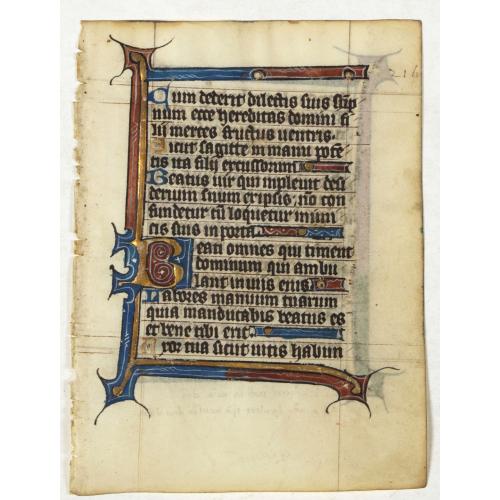 Cum dederit dilectis suis somp
num ecce hereditas domini fi
lii merces fructus ventris.
Sicut sagitte in manu pote
tis ita filii excussorum
Beatus vir qui inpleuit desi
derium suum ex ipsis, no con
fundetur cu loquetur inimi
cis suis in porta.
Beati omnes qui timent
dominum qui ambu
lant in viis eius
Labores manuum tuarum
quia manducabis beatus es
et bene tibi erit
xor tua sicut vitis habun